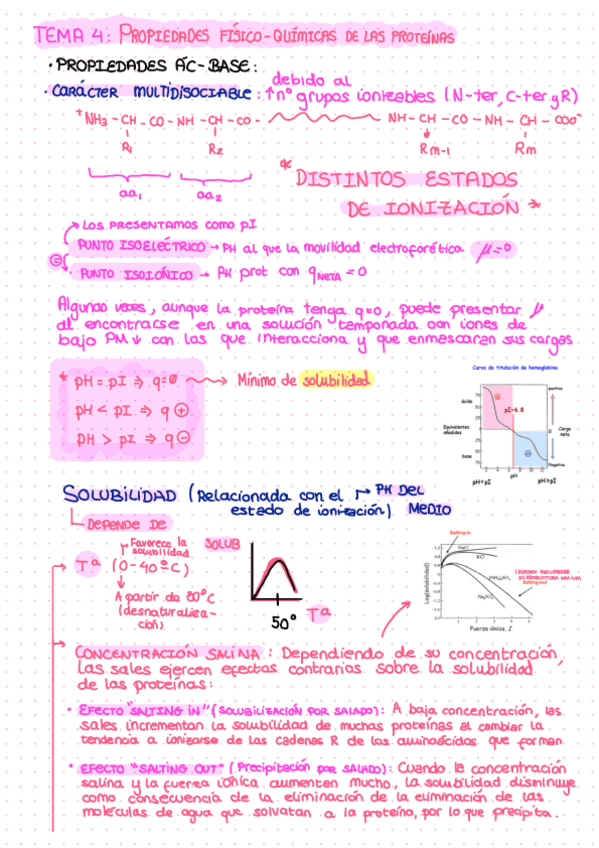 TEMA 4: PROPIEDADES FÍSICO-QUÍMICAS DE LAS PROTEÍNAS
· PROPIEDADES ÁC-BASE:
· CARÁCTER MULTIDISOCIABLE: debido al ↑nº grupos ionizables (N-ter, C-ter y R)
⁺NH₃ - CH - CO - NH - CH - CO - NH - CH - CO - NH - CH - COO⁻
R₁ R₂ Rm-1 Rm
aa₁ aa₂
* DISTINTOS ESTADOS
DE IONIZACIÓN *
→ LOS PRESENTAMOS COMO pI
PUNTO ISOELÉCTRICO → PH al que la movilidad electroforética μ=0
=
PUNTO ISOIÓNICO → PH prot con qNETA = 0
Algunas veces, aunque la proteína tenga q=0, puede presentar μ
al encontrarse en una solución tamponada con iones de
bajo PM ↓ con las que interacciona y que enmascaran sus cargas
* pH = pI ⇒ q=0 → Mínimo de solubilidad
pH < pI ⇒ q +
pH > pI ⇒ q -
Curva de titulación de hemoglobina
ácido
Equivalentes
añadidos
base
75
50
25
0
25
50
75
pI=6.8
positiva
0
Carga
neta
Negativa
2 4 6 8 10 12
pH<pI pH pH>pI
SOLUBILIDAD (Relacionada con el → PH DEL
estado de ionización) MEDIO
DEPENDE DE
→ Tª (0-40ºC)
Favorece la
solubilidad
A partir de 80ºC
(desnaturaliza-
ción)
SOLUB
50º Tª
Salting-in
NaCl
KCl
(NH₄)₂SO₄
Na₂SO₄
Salting-out
Log(solubilidad)
1 2 3 4
Fuerza iónica, I
→ CONCENTRACIÓN SALINA: Dependiendo de su concentración,
las sales ejercen efectos contrarios sobre la solubilidad
de las proteínas:
· EFECTO "SALTING IN" (SOLUBILIZACIÓN POR SALADO): A baja concentración, las
sales incrementan la solubilidad de muchas proteínas al cambiar la
tendencia a ionizarse de las cadenas R de los aminoácidos que forman
· EFECTO "SALTING OUT" (Precipitación por SALADO): Cuando la concentración
salina y la fuerza iónica aumentan mucho, la solubilidad disminuye
como consecuencia de la eliminación de la eliminación de las
moléculas de agua que solvatan a la proteína, por lo que precipita.